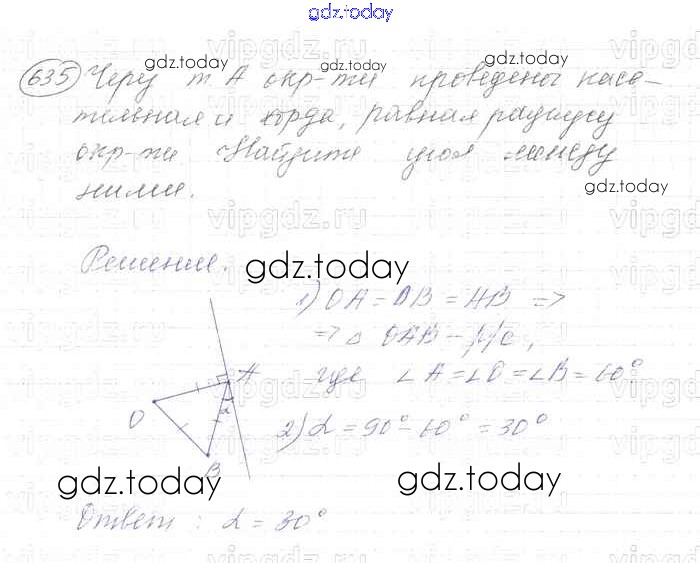 gdz.today
635 Через т. А окр-ти проведены каса-
тельная и хорда, равная радиусу
окр-ти. Найдите угол между
ними.
gdz.today
gdz.today
gdz.today
Решение.
gdz.today
1) OA = OB = AB =>
=> △ OAB - р/с,
где ∠A = ∠O = ∠B = 60°
2) α = 90° - 60° = 30°
O
A
α
B
gdz.today
gdz.today
Ответ: α = 30°
vipgdz.ru